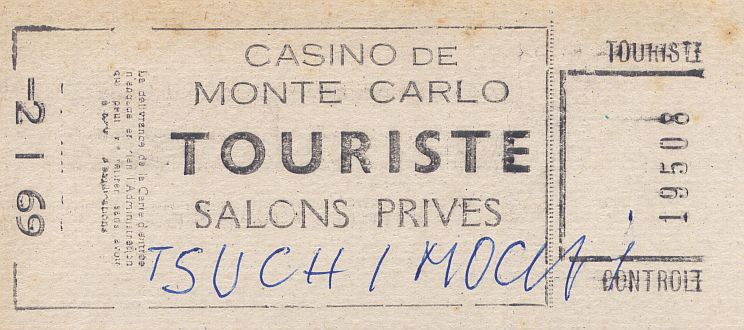 -2 1 69
La délivrance de la Carte d'entrée
n'engage en rien l'Administration
qui peut la retirer sans avoir
CASINO DE
MONTE CARLO
TOURISTE
SALONS PRIVES
TSUCHIMOCHI
TOURISTE
19508
CONTROLE